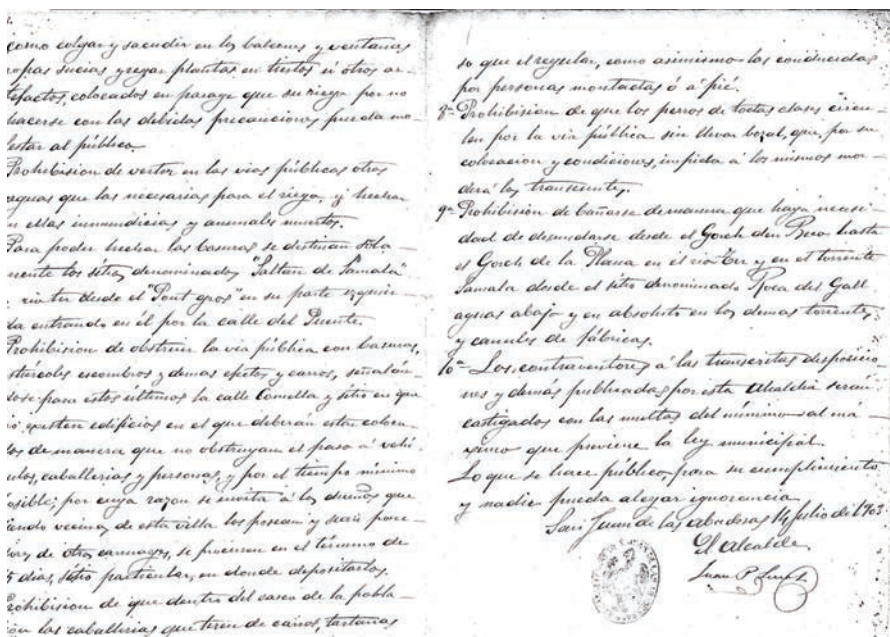 como colgar y sacudir en los balcones y ventanas
ropas sucias y regar plantas en tiestos ú otros ar-
tefactos, colocados en parage que su riego por no
hacerse con las debidas precauciones pueda mo-
lestar al público.
Prohibision de verter en las vias públicas otras
aguas que las necesarias para el riego, y hechar
en ellas inmundicias y animales muertos.
Para poder hechar las basuras se destinan sola-
mente los sitios denominados "Saltán de Samalá"
rio ter desde el "Pont gros" en su parte izquier-
da entrando en él por la calle del Puente.
Prohibision de obstruir la via pública con basuras,
estiércoles escombros y demas efectos y carros, señalán-
dose para estos últimos la calle Comella y sitio en que
no existen edificios en el que deberán estar coloca-
dos de manera que no obstruyan el paso á vehí-
culos, caballerias, y personas, y por el tiempo mínimo
posible; por cuya razon se invita á los dueños que
siendo vecinos de esta villa los posean y sean posee-
dores de otros carruages, se procuren en el término de
5 dias, sitio particular, en donde depositarlos.
Prohibision de que dentro del casco de la pobla-
cion las caballerias que tiren de carros, tartanas
so que el regular, como asimismo las conducidas
por personas montadas ó á pié.
8ª Prohibision de que los perros de todas clases circu-
len por la via pública sin llevar bozal, que, por su
colocacion y condiciones, impida á los mismos mor-
der á los transeuntes.
9ª Prohibision de bañarse de manera que haya necesi-
dad de desnudarse desde el Gorch den Beco hasta
el Gorch de la Plana en el rio Ter y en el torrente
Samala desde el sitio denominado Roca del Gall
aguas abajo y en absoluto en los demas torrentes
y canales de fábricas.
10ª Los contraventores á las transcritas disposicio-
nes y demás publicadas por esta Alcaldia serán
castigados con las multas del minimo al má-
ximo que previene la ley municipal.
Lo que se hace público, para su cumplimiento
y nadie pueda alegar ignorancia.
San Juan de las Abadesas 14 Julio de 1903.
El Alcalde,
Juan P.